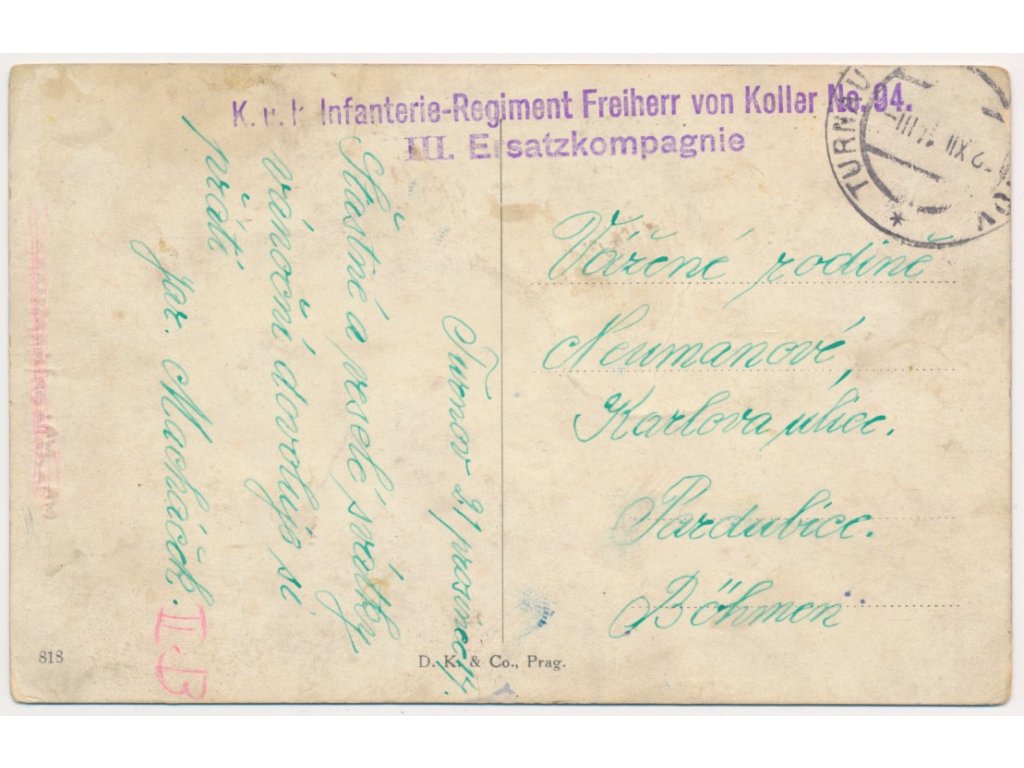 K. u. k. Infanterie-Regiment Freiherr von Koller No. 94.
III. Ersatzkompagnie
TURNAU
XII 14
Turnov 21 prosince 14.
Šťastné a veselé svátky
vánoční dovoluje si
přáti
Jar. Macháček.
Vážené rodině
Neumanové,
Karlova ulice.
Pardubice.
Böhmen
II. B
818
D. K. & Co., Prag.